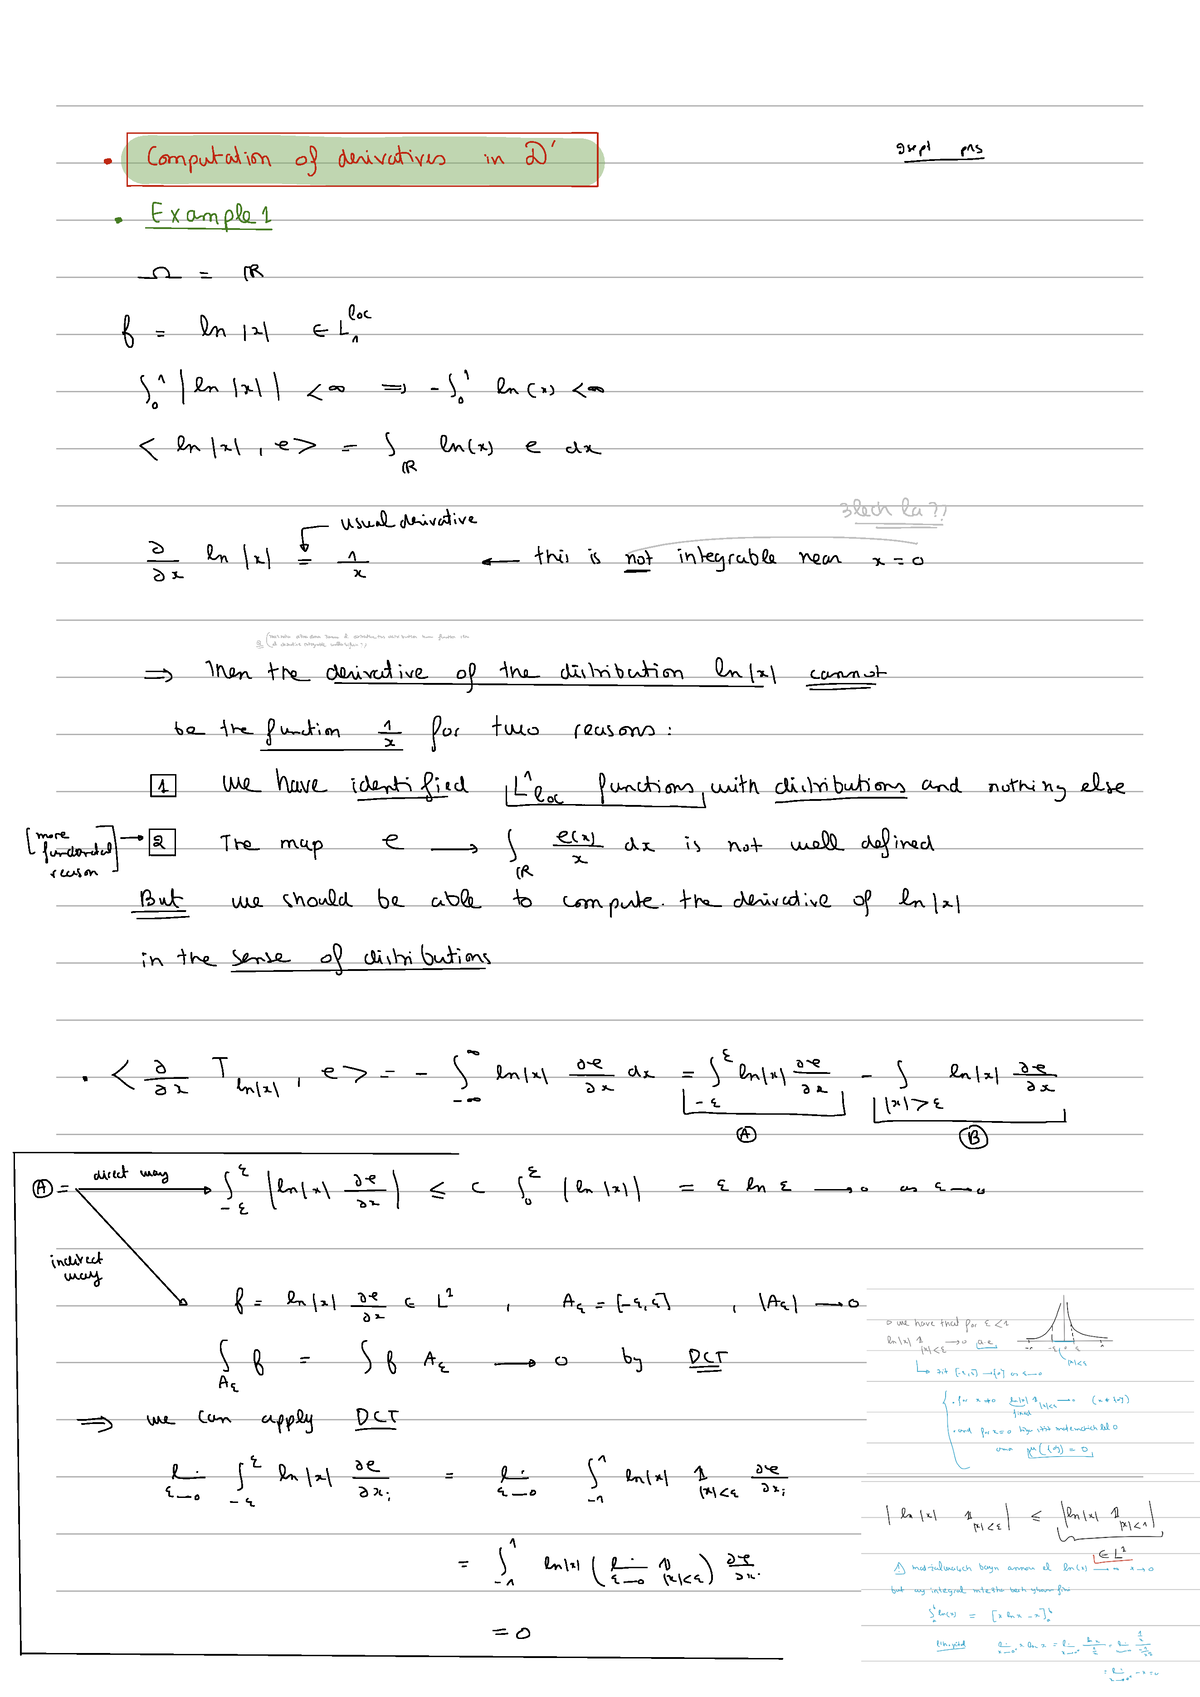 • Computation of derivatives in D'
9 sept pns
• Example 1
Ω = ℝ
f = ln |x| ∈ L₁^loc
∫₀¹ |ln |x|| < ∞ ⇒ - ∫₀¹ ln(x) < ∞
< ln |x| , e > = ∫_ℝ ln(x) e dx
usual derivative
3lech la??
∂/∂x ln |x| = 1/x ← this is not integrable near x = 0
⇒ Then the derivative of the distribution ln |x| cannot
be the function 1/x for two reasons :
1 we have identified L¹_loc functions, with distributions and nothing else
[more fundamental reason] → 2 The map e → ∫_ℝ e(x)/x dx is not well defined
But we should be able to compute. the derivative of ln |x|
in the sense of distributions
• < ∂/∂x T_ln|x| , e > = - ∫_{-∞}^{∞} ln|x| ∂e/∂x dx = ∫_{-ε}^{ε} ln|x| ∂e/∂x - ∫_{|x|>ε} ln|x| ∂e/∂x
A B
A = direct way → ∫_{-ε}^{ε} |ln|x| ∂e/∂x| ≤ c ∫₀^ε |ln |x|| = ε ln ε → 0 as ε → 0
indirect way
f = ln|x| ∂e/∂x ∈ L¹ , A_ε = [-ε,ε] , |A_ε| → 0
∫_{A_ε} f = ∫ f A_ε → 0 by DCT
⇒ we can apply DCT
lim_{ε→0} ∫_{-ε}^{ε} ln|x| ∂e/∂x_i = lim_{ε→0} ∫_{-1}^{1} ln|x| 𝟙_{|x|<ε} ∂e/∂x_i
= ∫_{-1}^{1} ln|x| ( lim_{ε→0} 𝟙_{|x|<ε} ) ∂e/∂x_i
= 0
we have that for ε < 1
ln|x| 𝟙_{|x|<ε} → 0 a.e
|x|<ε
[-ε,ε] → {0} as ε→0
• for x≠0 ln|x| 𝟙_{|x|<ε} → 0 (x≠{0})
fixed
• and for x=0
μ({0}) = 0,
|ln |x| 𝟙_{|x|<ε}| ≤ |ln|x| 𝟙_{|x|<1}|
∈ L¹
ln(x) → -∞ x→0
= [x ln x - x]